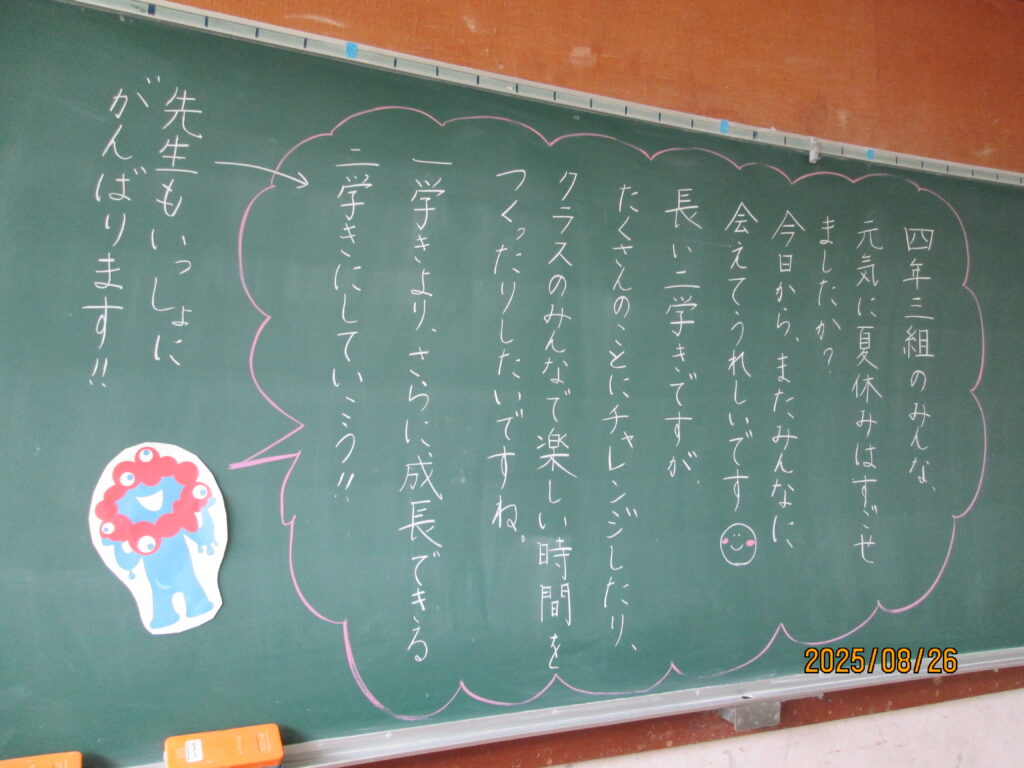 四年三組のみんな、
元気に夏休みはすごせ
ましたか?
今日から、またみんなに、
会えてうれしいです
長い二学きですが、
たくさんのことにチャレンジしたり、
クラスのみんなで楽しい時間を
つくったりしたいですね。
一学きより、さらに、成長できる
二学きにしていこう!!
先生もいっしょに
がんばります!!
2025/08/26